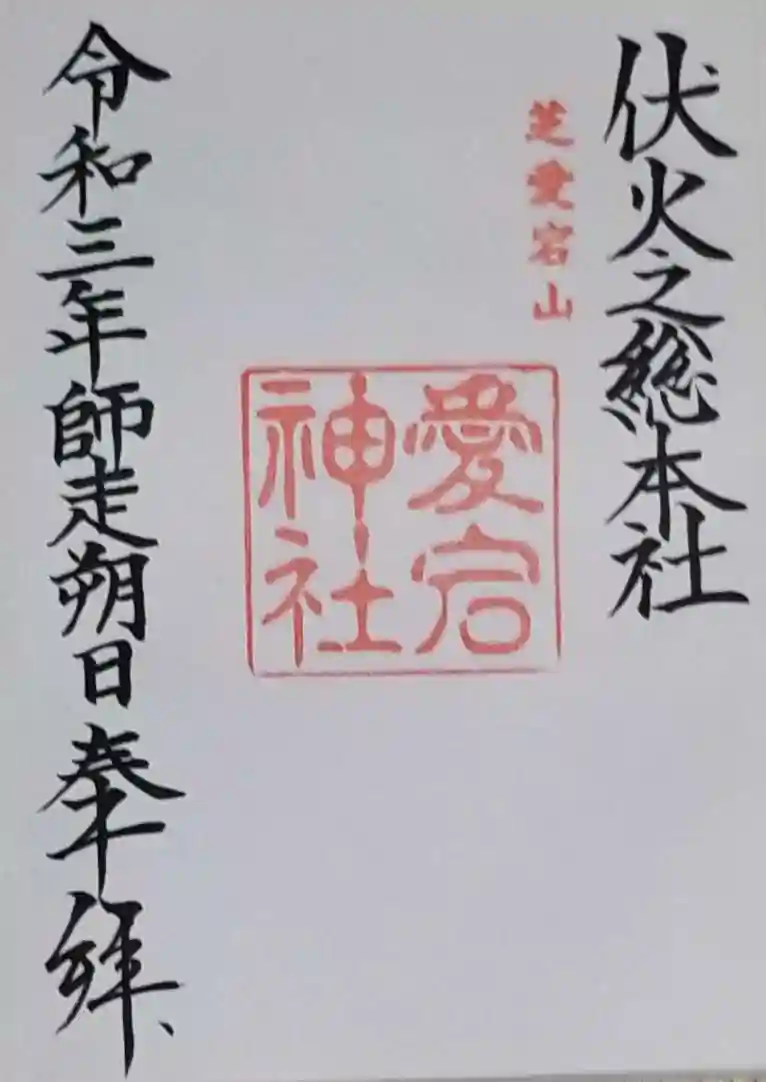 伏火之総本社
芝愛宕山
愛宕
神社
令和三年師走朔日奉拝